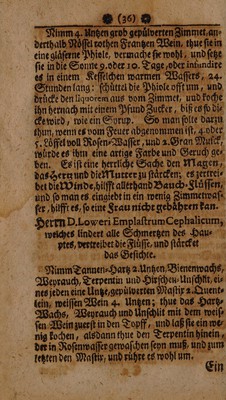 (36)
Nimm 4. Untzen grob gepülverten Zimmet, an-
derthalb Nössel rothen Frantzen Wein, thue sie in
eine gläserne Phiole, vermache sie wohl, und setze
sie in die Sonne 9. oder 10. Tage, oder infundire
es in einem Kesselchen warmen Wassers, 24.
Stunden lang: schüttel die Phiole offt um, und
drücke den liquorem aus vom Zimmet, und koche
ihn hernach mit einem Pfund Zucker, biß es so di-
cke wird, wie ein Syrup. So man solte darzu
thun, wenn es vom Feuer abgenommen ist, 4. oder
5. Löffel voll Rosen-Wasser, und 2. Gran Musck,
würde es ihm eine artige Farbe und Geruch ge-
ben. Es ist eine herrliche Sache den Magen,
das Hertz und die Mutter zu stärcken; es zertrei-
bet die Winde, hilfft allerhand Bauch-Flüssen,
und so man es eingiebt in ein wenig Zimmetwas-
ser, hilfft es, so eine Frau nicht gebähren kan.
Herrn D. Loweri Emplastrum Cephalicum,
welches lindert alle Schmertzen des Hau-
ptes, vertreibet die Flüsse, und stärcket
das Gesichte.
Nimm Tannen-Hartz 2. Untzen, Bienenwachs,
Weyrauch, Terpentin und Hirschen-Unschlit, ei-
nes jeden eine Untze, gepülverten Mastix 2. Quent-
lein, weissen Wein 4. Untzen; thue das Hartz,
Wachs, Weyrauch und Unschlit mit dem weis-
sen Wein zuerst in den Topff, und laß sie ein we-
nig kochen, alsdann thue den Terpentin hinein,
der in Rosenwasser gewaschen seyn muß, und zum
letzten den Mastix, und rühre es wohl um.
Ein